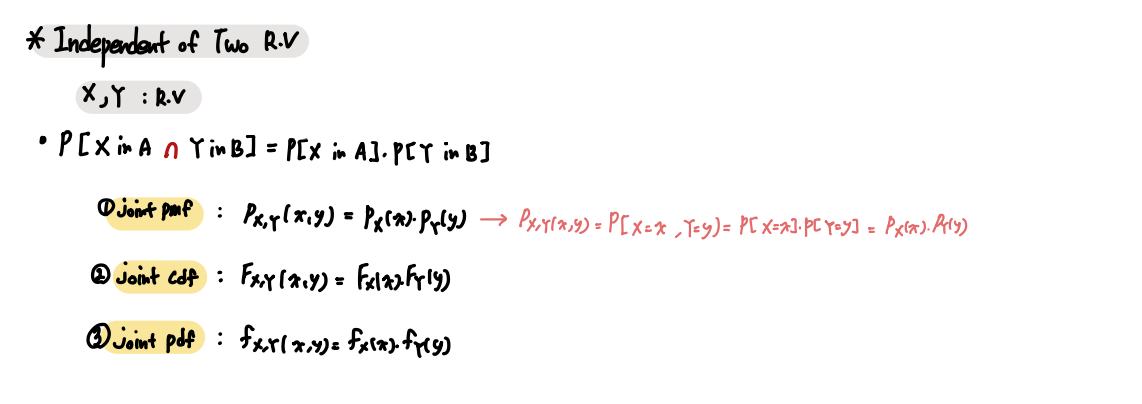 * Independent of Two R.V
X, Y : R.V
• P[X in A ∩ Y in B] = P[X in A]. P[Y in B]
① joint pmf : P_X,Y(x,y) = P_X(x)·P_Y(y) → P_X,Y(x,y) = P[X=x , Y=y] = P[X=x].P[Y=y] = P_X(x).P_Y(y)
② joint cdf : F_X,Y(x,y) = F_X(x).F_Y(y)
③ joint pdf : f_X,Y(x,y) = f_X(x).f_Y(y)